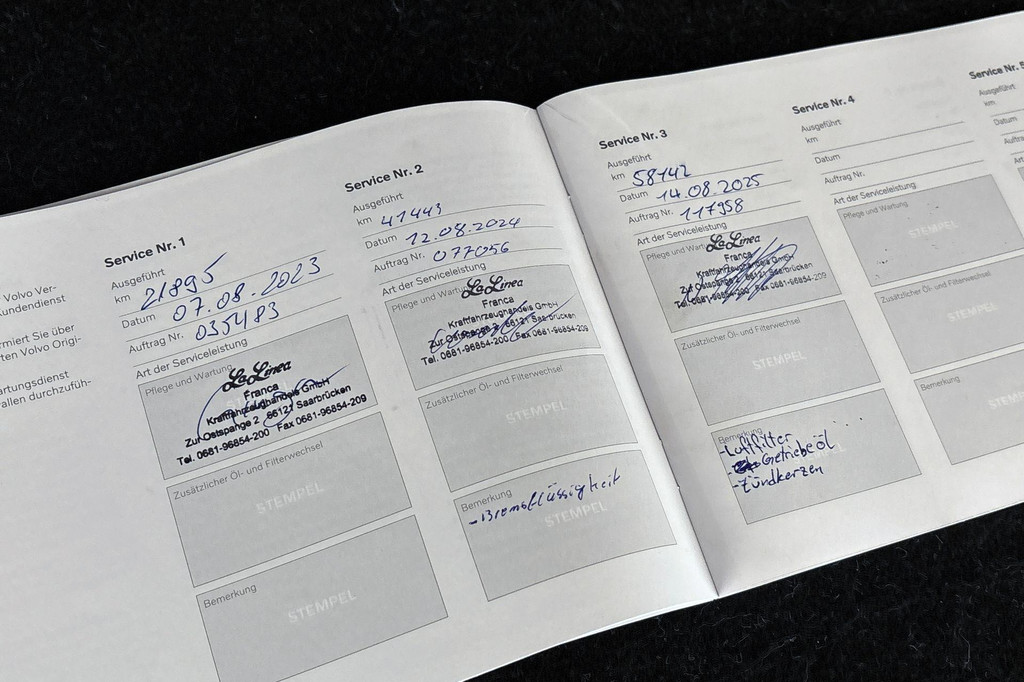 Volvo Ver-
undendienst
rmiert Sie über
ten Volvo Origi-
artungsdienst
allen durchzufüh-
Service Nr. 1
Ausgeführt
km 21895
Datum 07.08.2023
Auftrag Nr. 035483
Art der Serviceleistung
Pflege und Wartung
La Linea
Franca
Kraftfahrzeughandels GmbH
Zur Ostspange 2 66121 Saarbrücken
Tel. 0681-96854-200 Fax 0681-96854-209
Zusätzlicher Öl- und Filterwechsel
STEMPEL
Bemerkung
STEMPEL
Service Nr. 2
Ausgeführt
km 41443
Datum 12.08.2024
Auftrag Nr. 077056
Art der Serviceleistung
Pflege und Wartung
La Linea
Franca
Kraftfahrzeughandels GmbH
Zur Ostspange 2 66121 Saarbrücken
Tel. 0681-96854-200 Fax 0681-96854-209
Zusätzlicher Öl- und Filterwechsel
STEMPEL
Bemerkung
- Bremsflüssigkeit
STEMPEL
Service Nr. 3
Ausgeführt
km 58142
Datum 14.08.2025
Auftrag Nr. 117958
Art der Serviceleistung
Pflege und Wartung
La Linea
Franca
Kraftfahrzeughandels GmbH
Zur Ostspange 2 66121 Saarbrücken
Tel. 0681-96854-200 Fax 0681-96854-209
Zusätzlicher Öl- und Filterwechsel
STEMPEL
Bemerkung
- Luftfilter
- Getriebeöl
- Zündkerzen
Service Nr. 4
Ausgeführt
km
Datum
Auftrag Nr.
Art der Serviceleistung
Pflege und Wartung
STEMPEL
Zusätzlicher Öl- und Filterwechsel
STEMPEL
Bemerkung
STEMPEL
Service Nr. 5
Ausgeführt
km
Datum